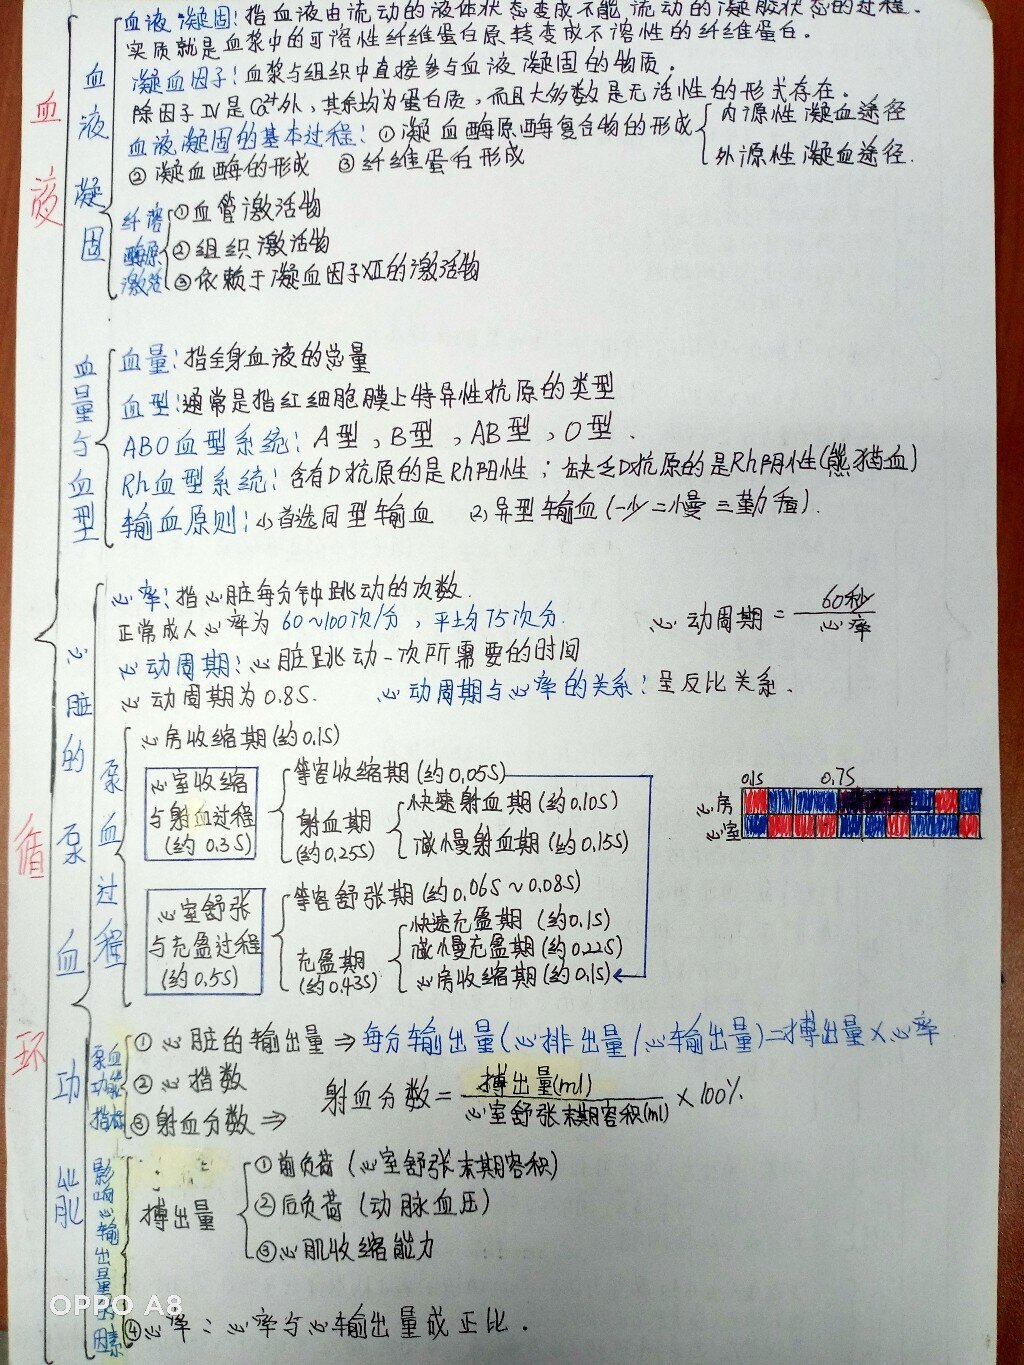 血液循环
血液凝固
血液凝固:指血液由流动的液体状态变成不能流动的凝胶状态的过程.
实质就是血浆中的可溶性纤维蛋白原转变成不溶性的纤维蛋白.
凝血因子:血浆与组织中直接参与血液凝固的物质.
除因子IV是Ca²⁺外,其余均为蛋白质,而且大多数是无活性的形式存在.
血液凝固的基本过程:①凝血酶原酶复合物的形成
内源性凝血途径
外源性凝血途径.
②凝血酶的形成 ③纤维蛋白形成
纤溶酶原激活
①血管激活物
②组织激活物
③依赖于凝血因子XII的激活物
血量与血型
血量:指全身血液的总量
血型:通常是指红细胞膜上特异性抗原的类型
ABO血型系统:A型,B型,AB型,O型.
Rh血型系统:含有D抗原的是Rh阳性;缺乏D抗原的是Rh阴性(熊猫血)
输血原则:(1)首选同型输血 (2)异型输血(一少二慢三勤看).
心脏的泵血功能
心率:指心脏每分钟跳动的次数.
正常成人心率为60~100次/分,平均75次分.
心动周期=60秒/心率
心动周期:心脏跳动一次所需要的时间
心动周期为0.8S. 心动周期与心率的关系:呈反比关系.
泵血过程
心房收缩期(约0.1S)
心室收缩与射血过程(约0.3S)
等容收缩期(约0.05S)
射血期(约0.25S)
快速射血期(约0.10S)
减慢射血期(约0.15S)
0.1S 0.7S
心房
心室
心室舒张与充盈过程(约0.5S)
等容舒张期(约0.06S~0.08S)
充盈期(约0.43S)
快速充盈期(约0.1S)
减慢充盈期(约0.22S)
心房收缩期(约0.1S)
泵血功能指标
①心脏的输出量⇒每分输出量(心排出量/心输出量)=搏出量×心率
②心指数
③射血分数⇒ 射血分数=搏出量(ml)/心室舒张末期容积(ml)×100%
影响心输出量的因素
搏出量
①前负荷(心室舒张末期容积)
②后负荷(动脉血压)
③心肌收缩能力
④心率:心率与心输出量成正比.
OPPO A8